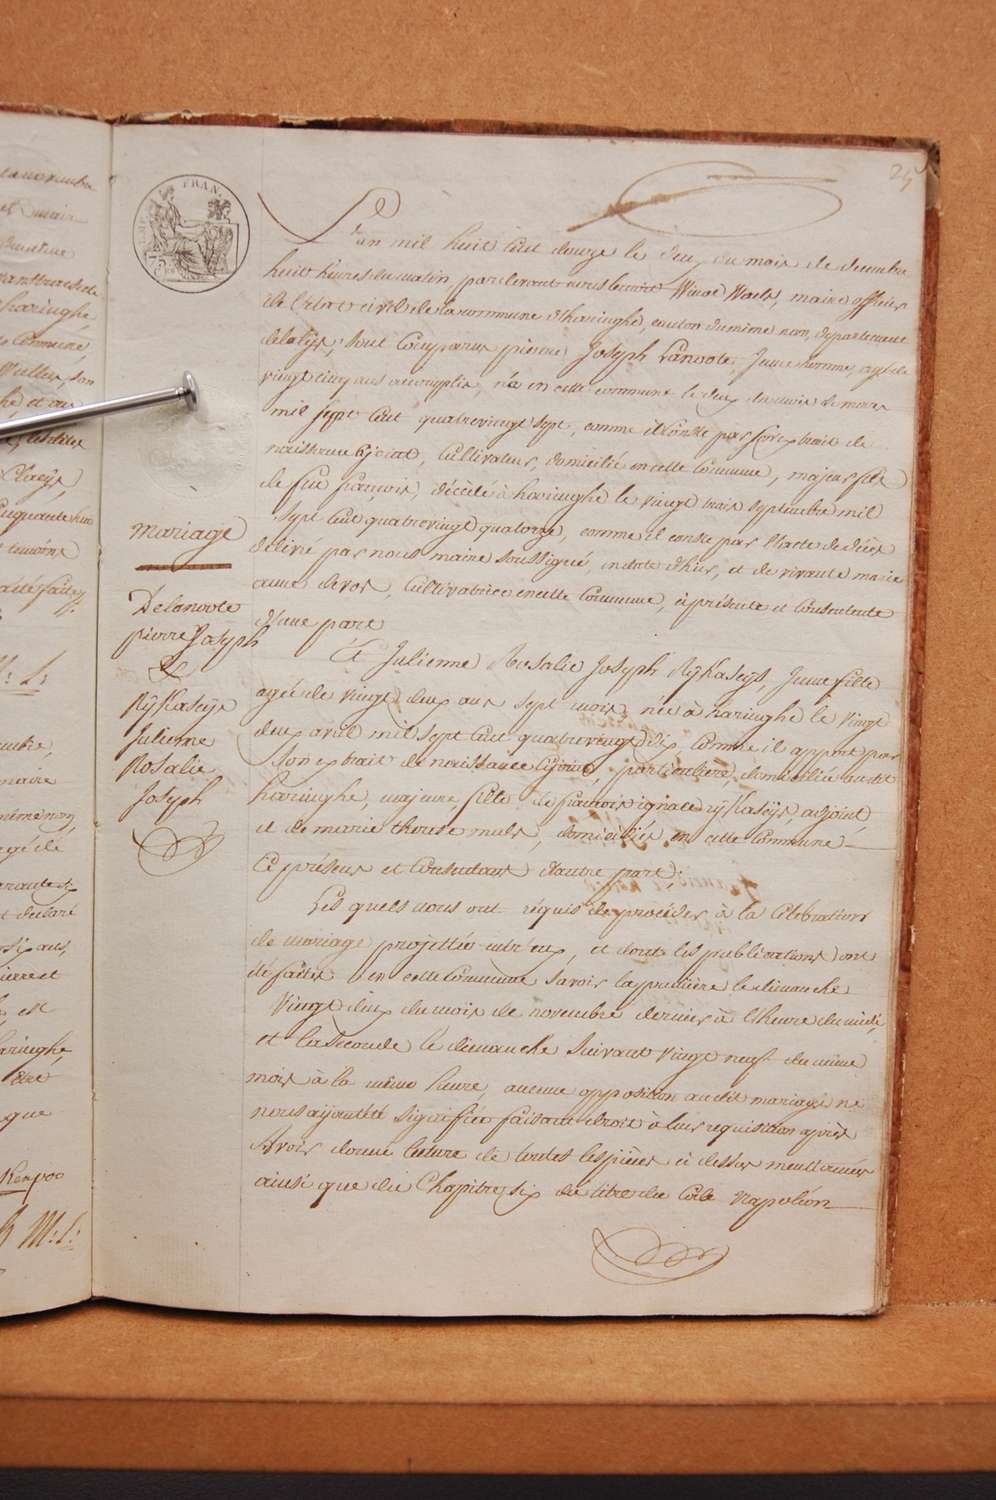 25
EMP. FRAN.
L'an mil huit cent douze le deux du mois de decembre
huit heures du matin, pardevant nous Winoc Waels, maire officier
de l'état civil de la commune d'haringhe, canton du même nom, departement
de la lijs; sont comparus pierre Joseph Lanoote, Jeune homme, agé de
vingt cinq ans accomplis, né en cette commune le deux du mois de mars
mil sept cent quatrevingt sept, comme il conste par son extrait de
naissance cijoint, Cultivateur, domicilié en cette Commune, majeur fils
de feu francois, décédé à haringhe le vingt trois septembre mil
sept cent quatrevingt quatorze, comme il conste par l'acte de décès
délivré par nous maire soussigné, en date d'hier, et de vivante marie
anne devos, Cultivatrice en cette Commune, ci présente et consentante
d'une part
Mariage
Delanoote
pierre Joseph
&
Rijkaseijs
Julienne
Rosalie
Joseph
Et Julienne Rosalie Joseph Rijkaseijs, Jeune fille
agée de vingt deux ans sept mois, née à haringhe le vingt
deux avril mil sept cent quatrevingt dix comme il appert par
son extrait de naissance cijoint, particulière, domiciliée au dit
haringhe, majeure, fille de francois ignace rijkaseijs, adjoint
et de marie therese mals, domiciliés en cette Commune
Ci présens et consentans d'autre part;
Les quels nous ont réquis de procéder à la célébration
de mariage projetté entr'eux, et dont les publications ont
été faites en cette Commune savoir la première le dimanche
vingt deux du mois de novembre dernier à l'heure du midi,
et la seconde le dimanche suivant vingt neuf du même
mois à la même heure, aucune opposition audit mariage ne
nous ayant été signifiée faisant droit à leur requisition après
avoir donné lecture de toutes les pièces ci dessus mentionnées
ainsi que du Chapitre six du titre du Code Napoléon